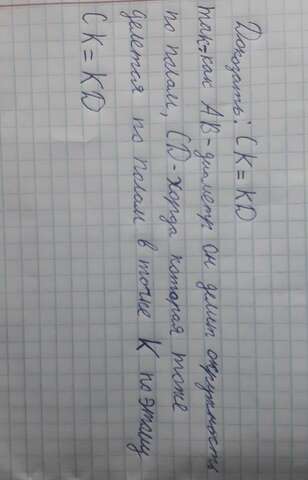 Доказать: CK = KD
так-как AB - диаметр он делит окружность
по полам, CD - хорда которая тоже
делется по полам в точке K по этому
CK = KD